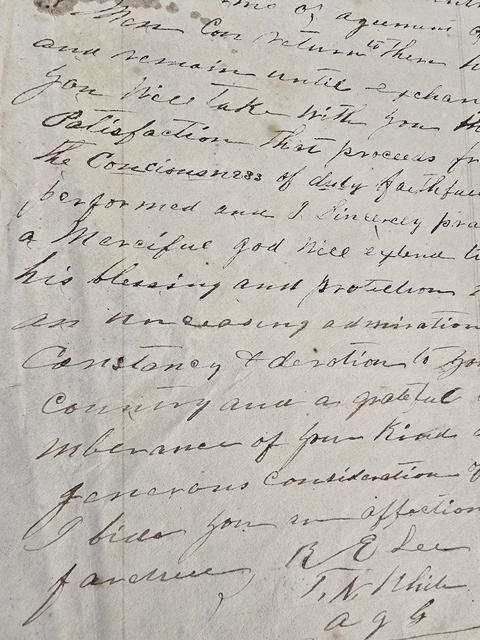 of agreement
Men Can return to them h
and remain until exchan
You Will Take With You the
Satisfaction that proceeds fr
the Conciousness of duty faithful
performed and I Sincerely pra
a Merciful god Will extend t
his blessing and protection
an unceasing admiration
Constancy & devotion to you
Country and a grateful
mberance of your Kind
generous consideration
I bida you an affection
farewell
R E Lee
T. N. White
a g G